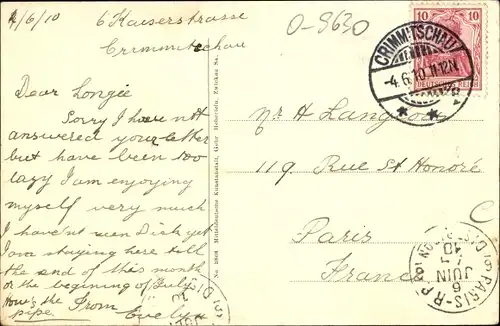 4/6/10 6 Kaiserstrasse
Crimmitschau
Dear Longie
Sorry I have not
answered your letter
but have been too
lazy I am enjoying
myself very much
I havn't seen Dick yet
I am staying here till
the end of this month
or the beginning of July.
How's the From
pipe. Evelyn
O-9630
10 10
DEUTSCHES REICH
CRIMMITSCHAU
-4.6.10.11-12N.
Mr H
119 Rue St Honoré
Paris
France
C
PARIS
6
JUIN
10
DISTRIBUTION